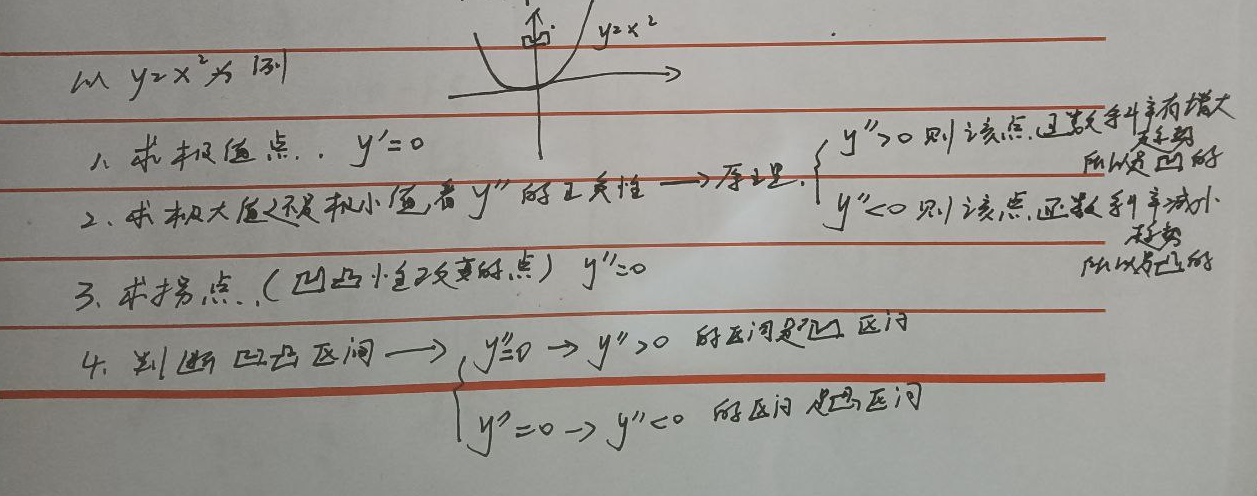 y=x²
以 y=x² 为例
1. 求极值点.. y'=0
2. 求极大值还是极小值,看 y'' 的正负性 → 原理.
y''>0 则该点.函数斜率有增大
趋势
所以是凹的
y''<0 则该点.函数斜率减小
趋势
所以是凸的
3. 求拐点..(凹凸性改变的点) y''=0
4. 判断凹凸区间 → y''=0 → y''>0 的区间是凹区间
y''=0 → y''<0 的区间是凸区间